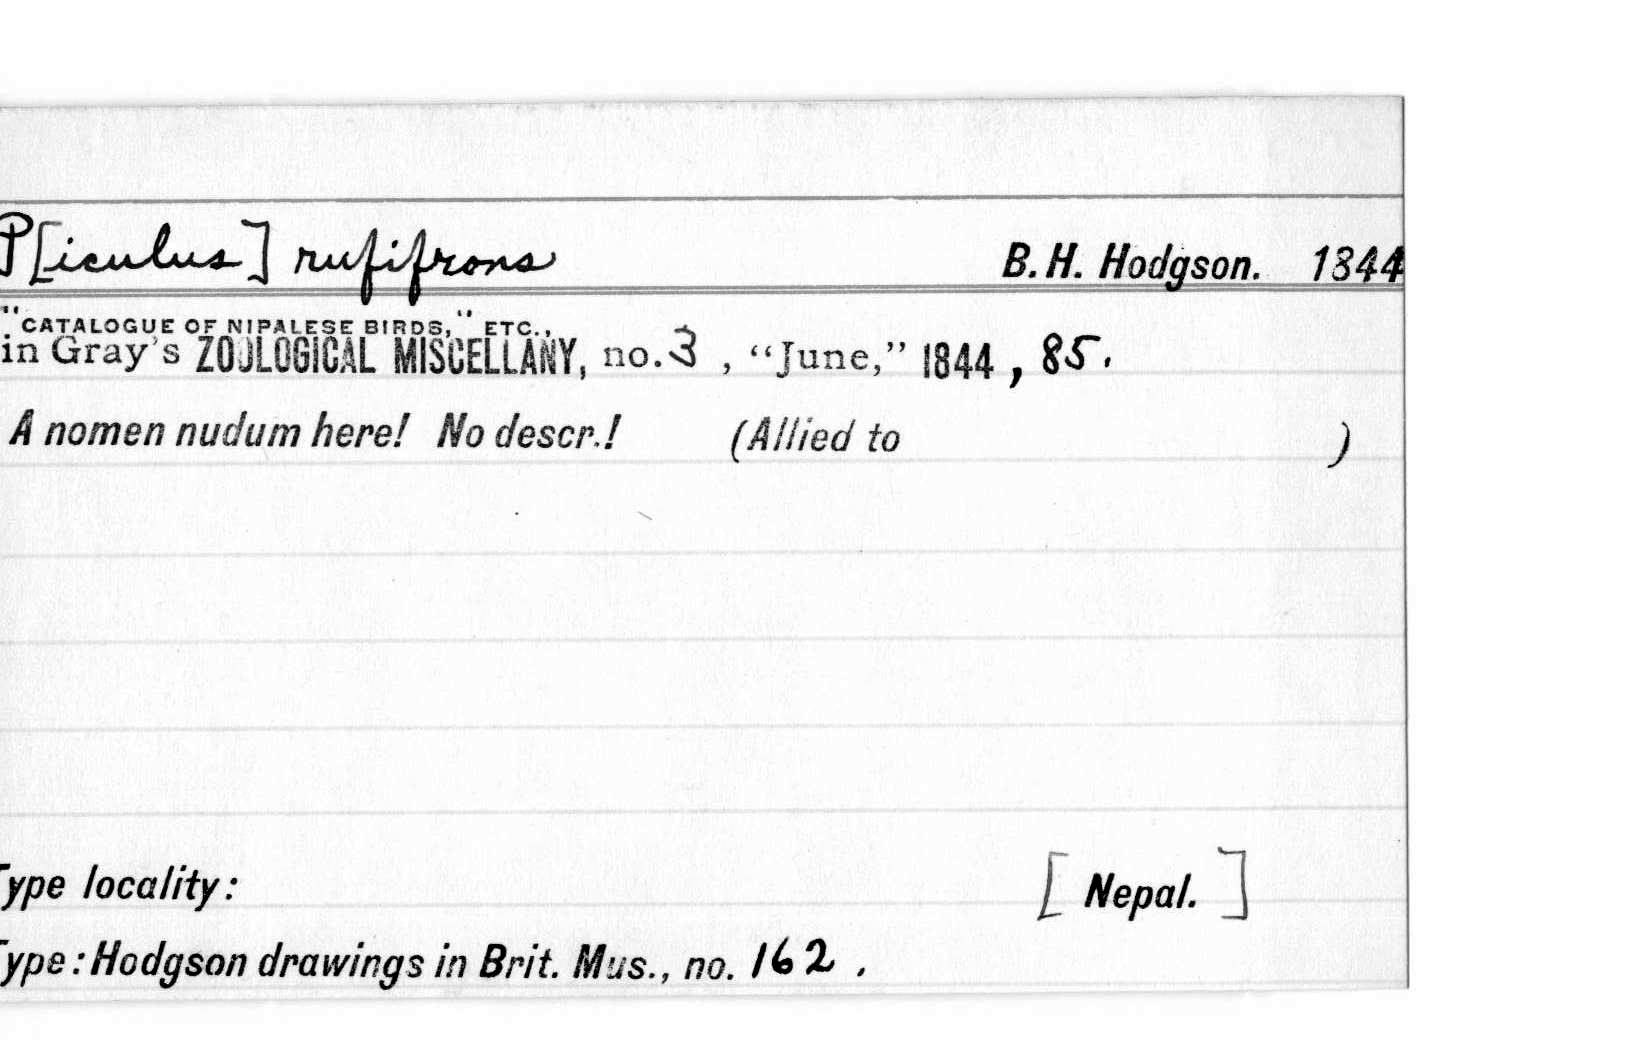 P[iculus] rufifrons B. H. Hodgson. 1844
"CATALOGUE OF NIPALESE BIRDS," ETC.,
in Gray's ZOOLOGICAL MISCELLANY, no. 3 , "June," 1844 , 85.
A nomen nudum here! No descr.! (Allied to )
Type locality: [ Nepal. ]
Type: Hodgson drawings in Brit. Mus., no. 162 .